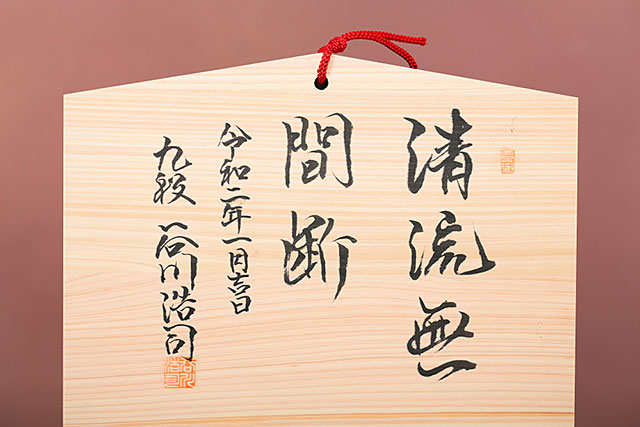 清流無
間断
令和二年一月吉日
九段 谷川浩司